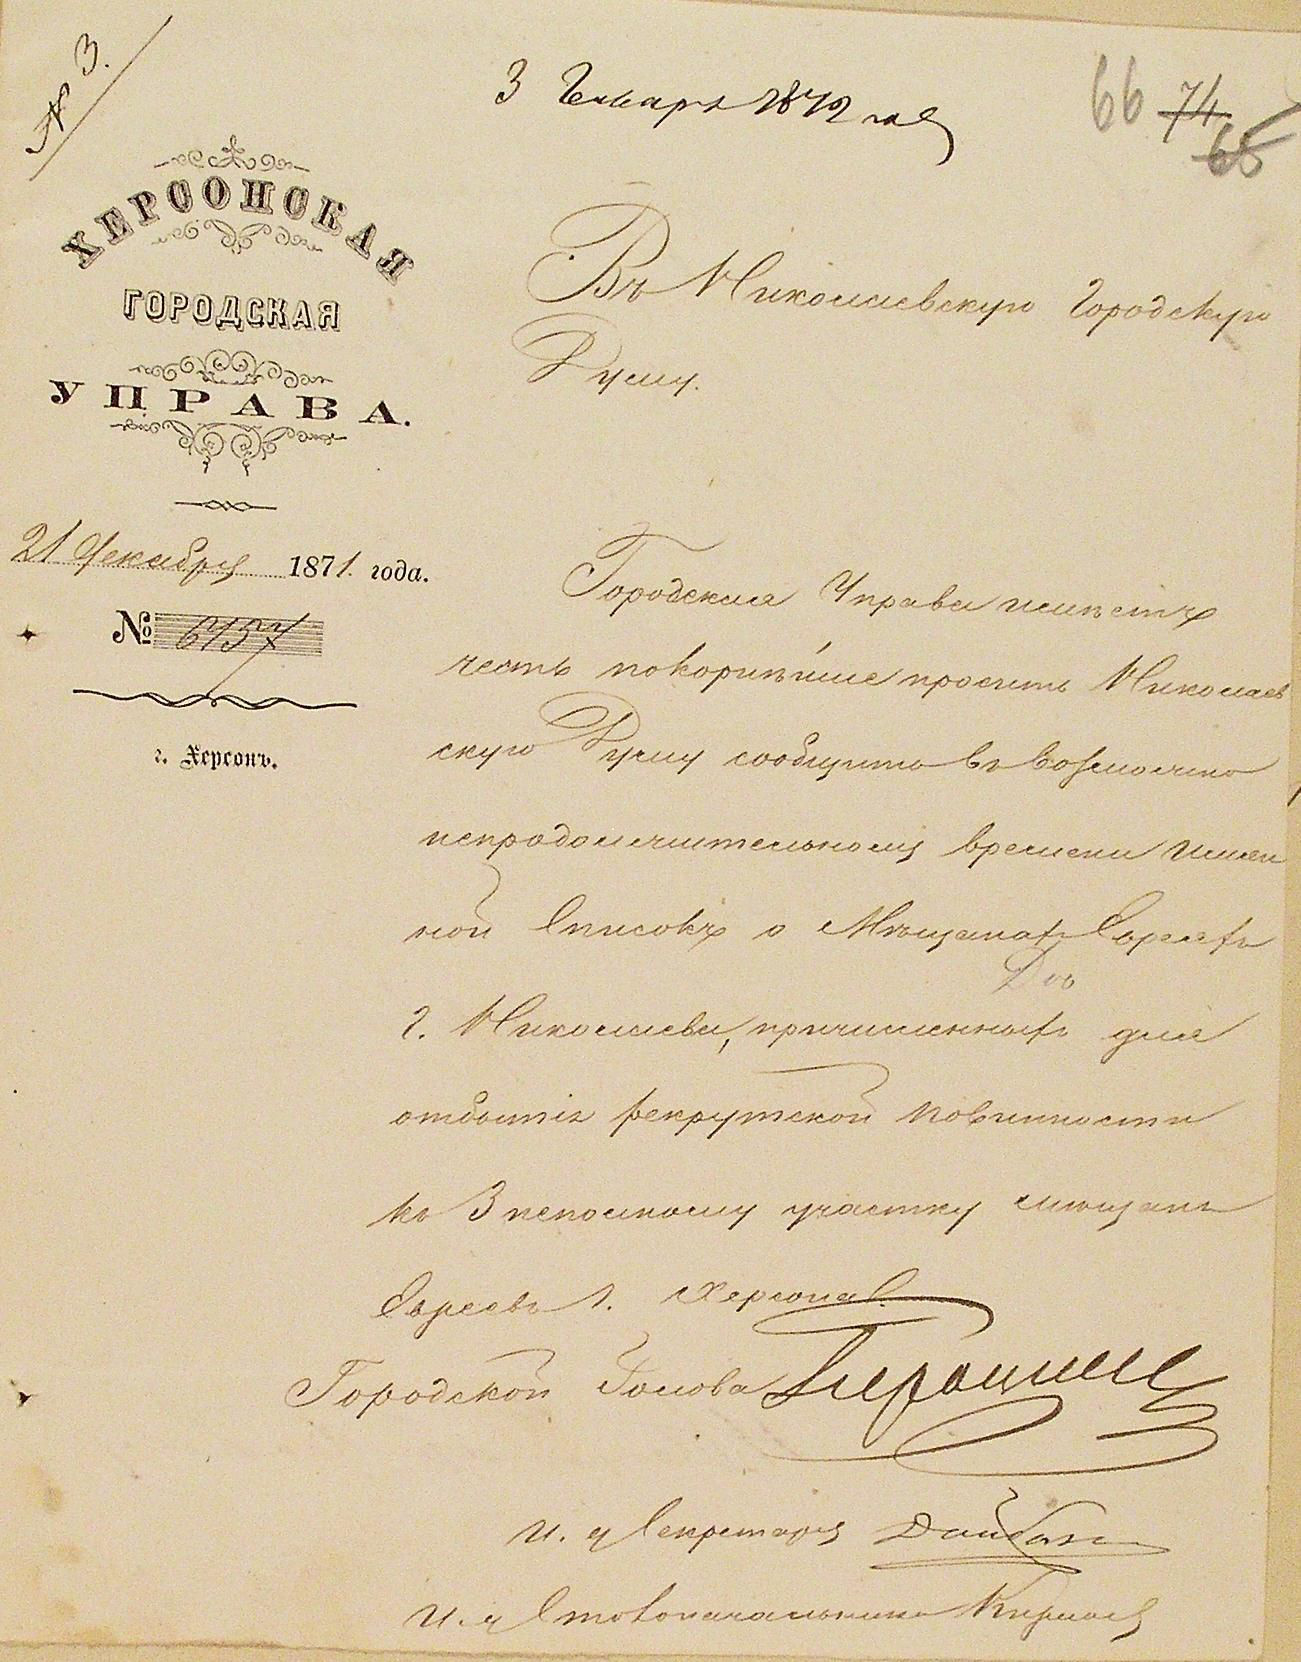 № 3.
3 Января 1872 года
66 74 65
ХЕРСОНСКАЯ
ГОРОДСКАЯ
УПРАВА.
21 Декабря 1871. года.
№ 6157
г. Херсонъ.
Въ Николаевскую Городскую
Думу.
Городская Управа имѣетъ
честь покорнѣйше просить Николаев
скую Думу сообщить въ возможно
непродолжительномъ времени имен
ной списокъ о Мѣщанахъ Евреяхъ
г. Николаева, причисленныхъ для
отбытія рекрутской повинности
къ 3 неполному участку мѣщанъ
Евреевъ г. Херсона.
Городской Голова
И. д. Секретаря
И. д. Столоначальника